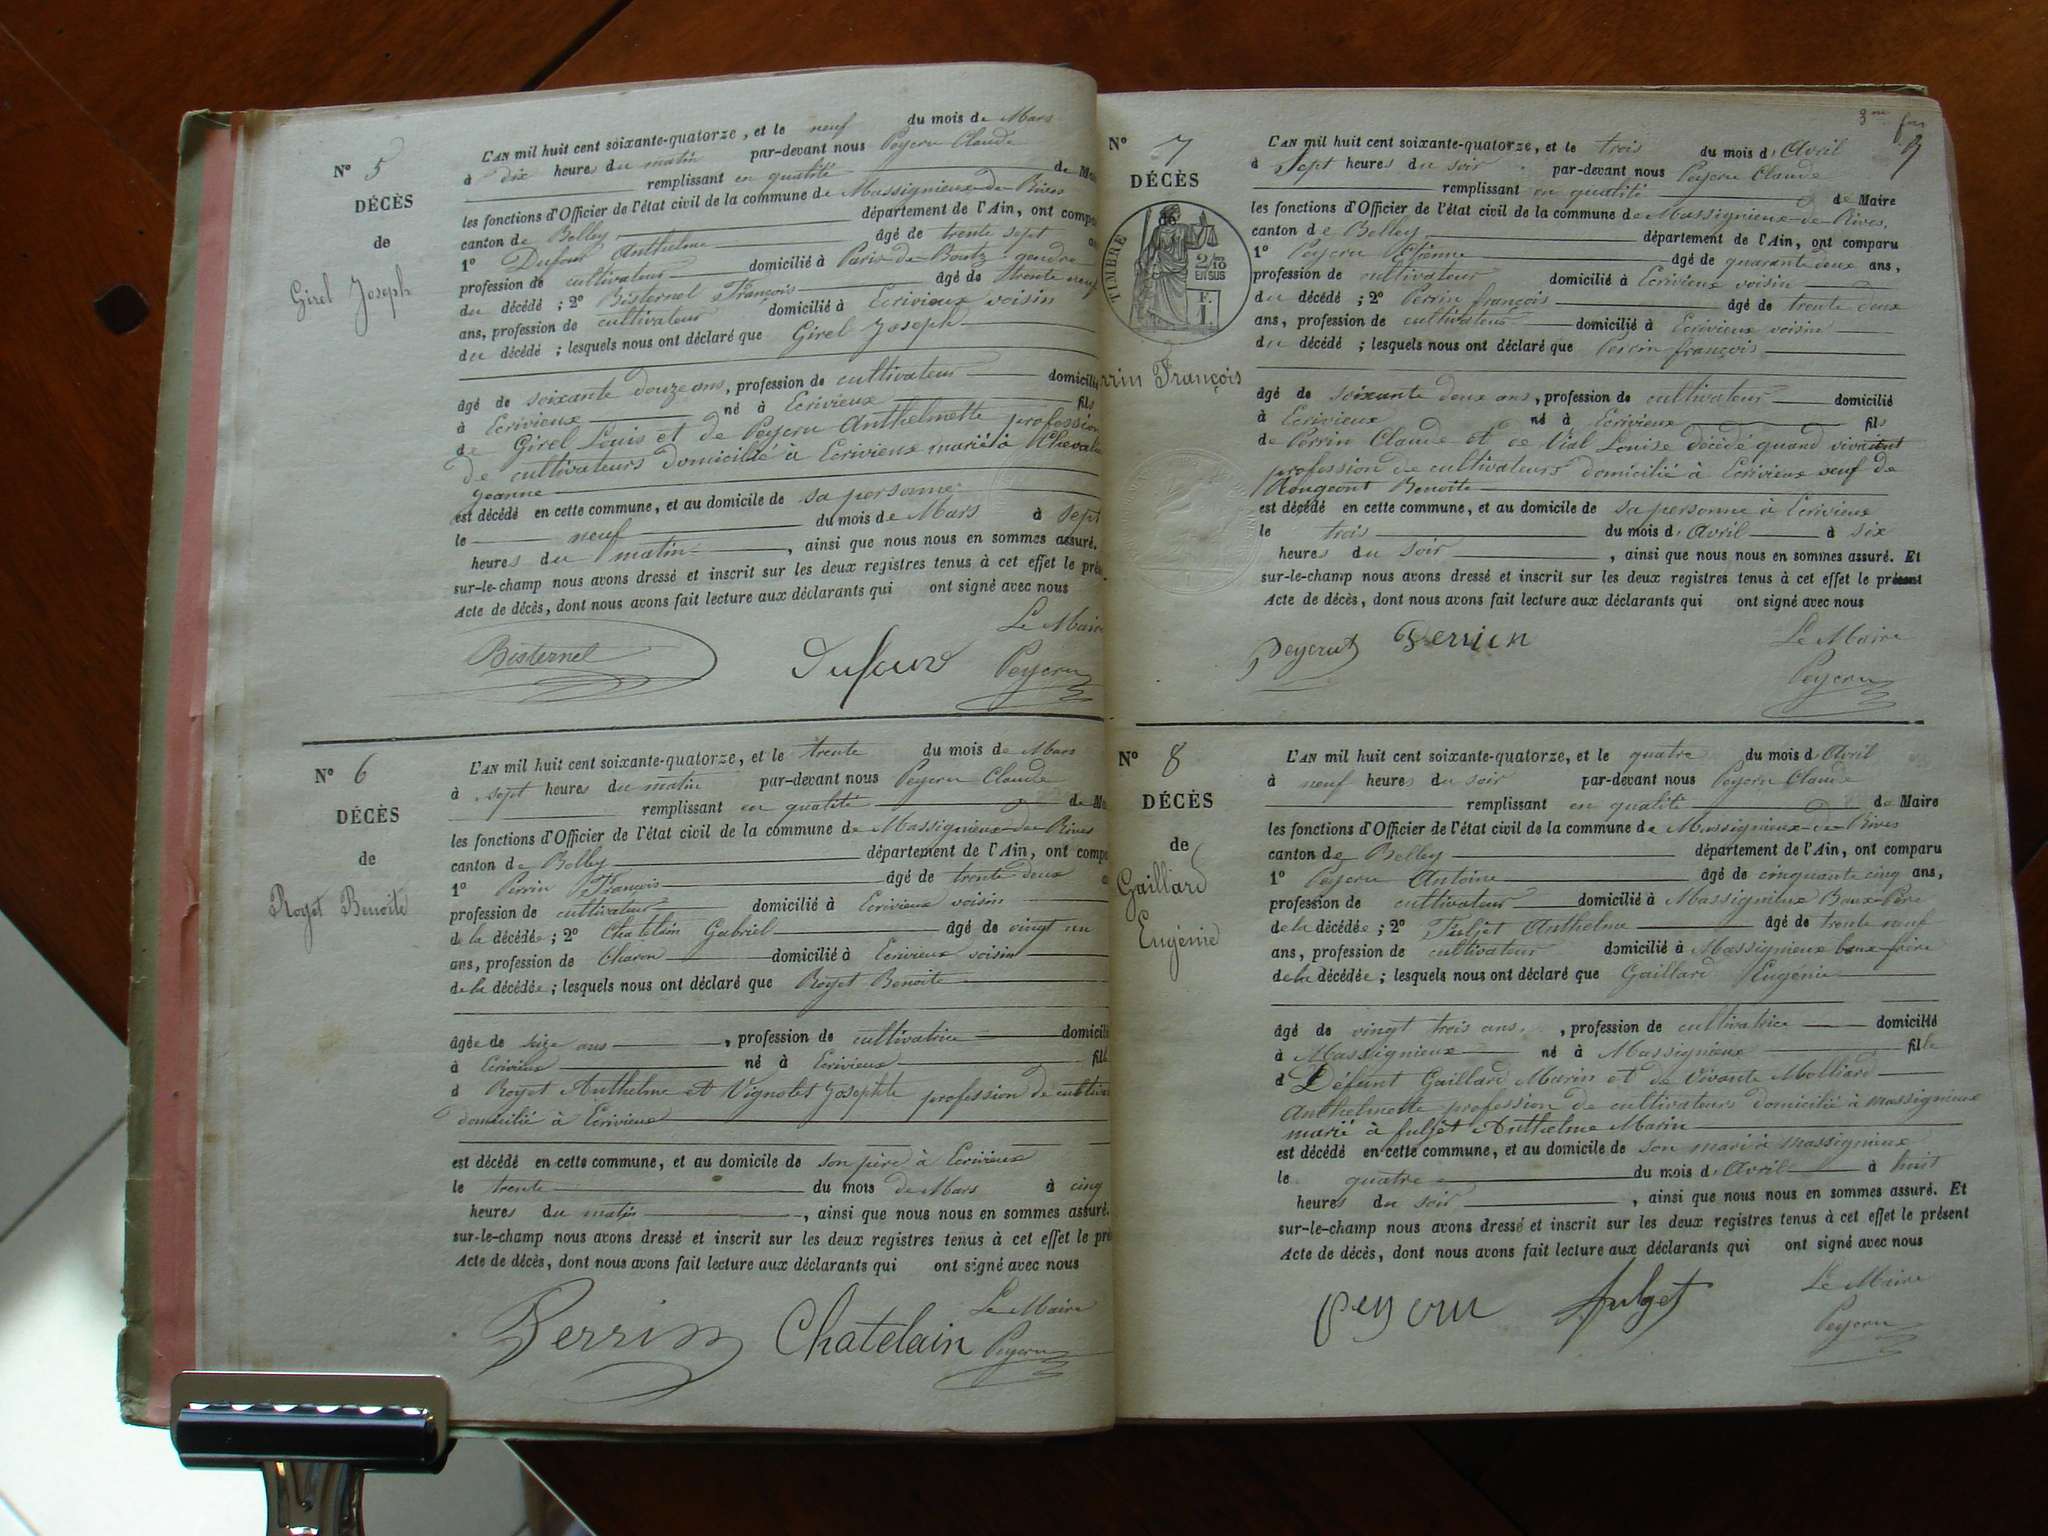 N° 5
DÉCÈS
de
Girel Joseph
L'AN mil huit cent soixante-quatorze, et le neuf du mois de Mars
à dix heures du matin par-devant nous Peycru Claude
remplissant en qualité de Mai
les fonctions d'Officier de l'état civil de la commune de Massignieux-de-Rives
canton de Belley département de l'Ain, ont compa
1° Dufour Anthelme âgé de trente sept
profession de cultivateur domicilié à Parves gendre
du décédé ; 2° Bisternel François âgé de trente neuf
ans, profession de cultivateur domicilié à Ecrivieux voisin
du décédé ; lesquels nous ont déclaré que Girel Joseph
âgé de soixante douze ans, profession de cultivateur domicilié
à Ecrivieux né à Ecrivieux fils
de Girel Louis et de Peycru Anthelmette profession
de cultivateurs domicilié à Ecrivieux marié à Chevalie
Jeanne
est décédé en cette commune, et au domicile de sa personne
le neuf du mois de Mars à sept
heures du matin, ainsi que nous nous en sommes assuré.
sur-le-champ nous avons dressé et inscrit sur les deux registres tenus à cet effet le pré
Acte de décès, dont nous avons fait lecture aux déclarants qui ont signé avec nous
Le Maire
Bisternel Dufour Peycru
N° 6
DÉCÈS
de
Royet Benoite
L'AN mil huit cent soixante-quatorze, et le trente du mois de Mars
à sept heures du matin par-devant nous Peycru Claude
remplissant en qualité de Mai
les fonctions d'Officier de l'état civil de la commune de Massignieux-de-Rives
canton de Belley département de l'Ain, ont compa
1° Perrin François âgé de trente-deux
profession de cultivateur domicilié à Ecrivieux voisin
de la décédée ; 2° Chatelain Gabriel âgé de vingt un
ans, profession de Charon domicilié à Ecrivieux voisin
de la décédée ; lesquels nous ont déclaré que Royet Benoite
âgée de seize ans, profession de cultivatrice domicili
à Ecrivieux né à Ecrivieux fille
d Royet Anthelme et Vignolet Josephte profession de cultiva
domicilié à Ecrivieux
est décédé en cette commune, et au domicile de son père à Ecrivieux
le trente du mois de Mars à cinq
heures du matin, ainsi que nous nous en sommes assuré.
sur-le-champ nous avons dressé et inscrit sur les deux registres tenus à cet effet le pré
Acte de décès, dont nous avons fait lecture aux déclarants qui ont signé avec nous
Le Maire
Perrin Chatelain Peycru
3me
N° 7
DÉCÈS
de
TIMBRE
2/10
EN SUS
F.
1.
rrin François
L'AN mil huit cent soixante-quatorze, et le trois du mois d'Avril
à Sept heures du soir par-devant nous Peycru Claude
remplissant en qualité de Maire
les fonctions d'Officier de l'état civil de la commune de Massignieux-de-Rives,
canton de Belley département de l'Ain, ont comparu
1° Peycru Etienne âgé de quarante deux ans,
profession de cultivateur domicilié à Ecrivieux voisin
du décédé ; 2° Perrin françois âgé de trente deux
ans, profession de cultivateur domicilié à Ecrivieux voisin
du décédé ; lesquels nous ont déclaré que Perrin françois
âgé de soixante deux ans, profession de cultivateur domicilié
à Ecrivieux né à Ecrivieux fils
de Perrin Claude et de Vial Louise décédé quand vivaient
profession de cultivateurs domicilié à Ecrivieux veuf de
Rougeont Benoite
est décédé en cette commune, et au domicile de sa personne à Ecrivieux
le trois du mois d'Avril à six
heures du soir, ainsi que nous nous en sommes assuré. Et
sur-le-champ nous avons dressé et inscrit sur les deux registres tenus à cet effet le présent
Acte de décès, dont nous avons fait lecture aux déclarants qui ont signé avec nous
Le Maire
Peycrut Perrien Peycru
N° 8
DÉCÈS
de
Gaillard
Eugénie
L'AN mil huit cent soixante-quatorze, et le quatre du mois d Avril
à neuf heures du soir par-devant nous Peycru Claude
remplissant en qualité de Maire
les fonctions d'Officier de l'état civil de la commune de Massignieux-de-Rives
canton de Belley département de l'Ain, ont comparu
1° Peycru Antoine âgé de cinquante cinq ans,
profession de cultivateur domicilié à Massignieux Baux-Père
de la décédée ; 2° Fuljet Anthelme âgé de trente neuf
ans, profession de cultivateur domicilié à Massignieux baux-frère
de la décédée ; lesquels nous ont déclaré que Gaillard Eugénie
âgé de vingt trois ans, profession de cultivatrice domicilié
à Massignieux né à Massignieux fille
d Défunt Gaillard Marin et de Vivante Molliard
Anthelmette profession de cultivateurs domicilié à Massignieux
marié à fuljet Anthelme Marin
est décédé en cette commune, et au domicile de son mari à Massignieux
le quatre du mois d'Avril à huit
heures du soir, ainsi que nous nous en sommes assuré. Et
sur-le-champ nous avons dressé et inscrit sur les deux registres tenus à cet effet le présent
Acte de décès, dont nous avons fait lecture aux déclarants qui ont signé avec nous
Le Maire
Peycru fulget Peycru